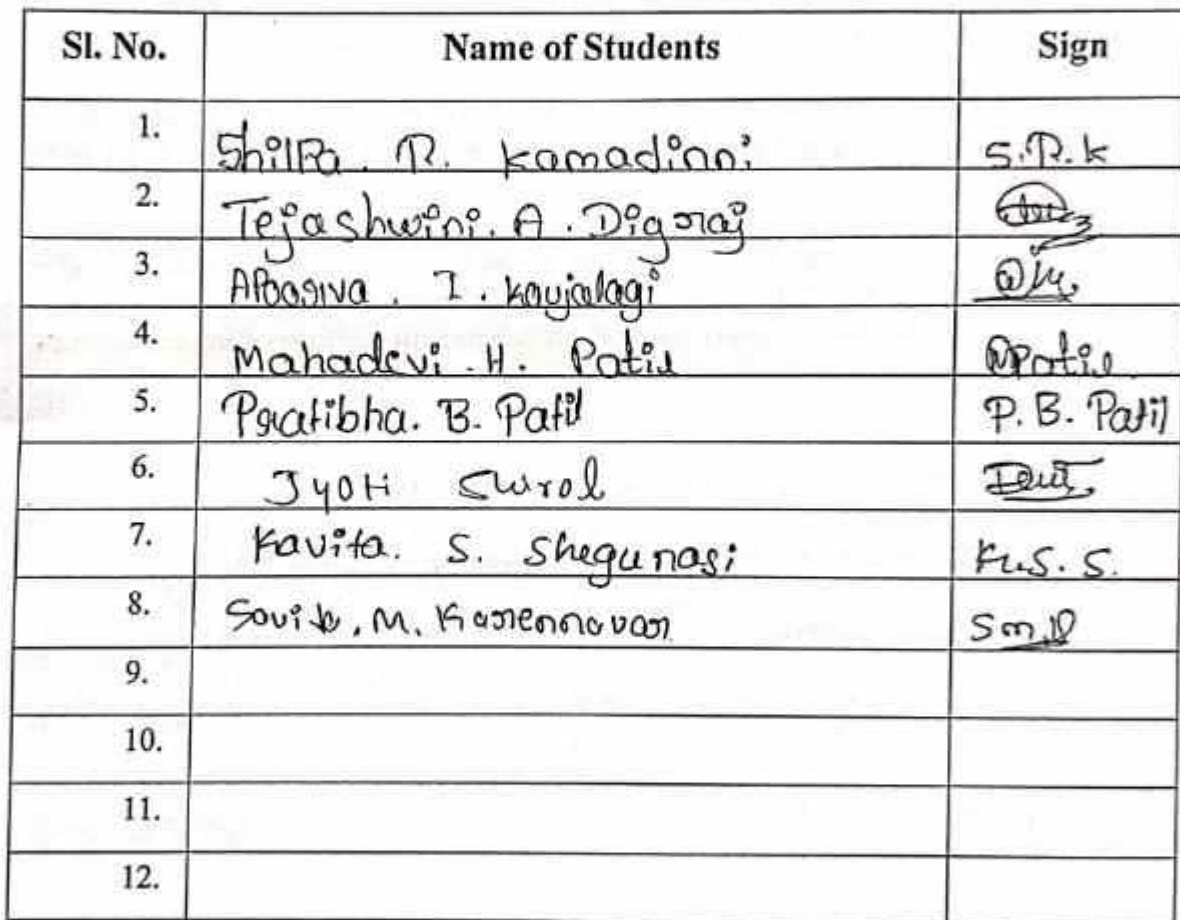 Sl. No. Name of Students Sign
1. Shilpa. R. Kamadinni S.R.K
2. Tejashwini. A. Digraj
3. I. Koujalagi
4. Mahadevi. H. Patil Patil
5. Pratibha. B. Patil P. B. Patil
6. Jyoti Surol
7. Kavita. S. Shegunasi K.S. S.
8. Savita. M. Karennavar
9.
10.
11.
12.